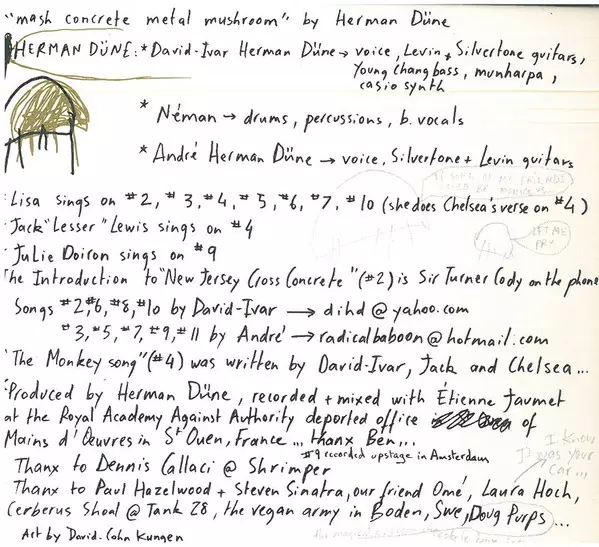 "mash concrete metal mushroom" by Herman Düne
HERMAN DÜNE: * David-Ivar Herman Düne → voice, Levin + Silvertone guitars,
Young Chang bass, munharpa,
casio synth
* Néman → drums, percussions, b. vocals
* André Herman Düne → voice, Silvertone + Levin guitars
IF SOME OF MY FRIENDS
COULD BE MONKEYS...
Lisa sings on #2, #3, #4, #5, #6, #7, #10 (she does Chelsea's verse on #4)
Jack "Lesser" Lewis sings on #4
LET ME
Julie Doiron sings on #9
The Introduction to "New Jersey Cross Concrete" (#2) is Sir Turner Cody on the phone
Songs #2, #6, #8, #10 by David-Ivar → dihd@yahoo.com
#3, #5, #7, #9, #11 by André → radicalbaboon@hotmail.com
"The Monkey song" (#4) was written by David-Ivar, Jack and Chelsea...
Produced by Herman Düne, recorded + mixed with Étienne Jaumet
at the Royal Academy Against Authority deported office of
Mains d'Œuvres in St Ouen, France... thanx Ben...
#9 recorded upstage in Amsterdam
I know
I was your
car...
Thanx to Dennis Callaci @ Shrimper
Thanx to Paul Hazelwood + Steven Sinatra, our friend Omé, Laura Hoch,
Cerberus Shoal @ Tank 28, the vegan army in Boden, Swe, Doug Purps...
Art by David-Cohn Kungen